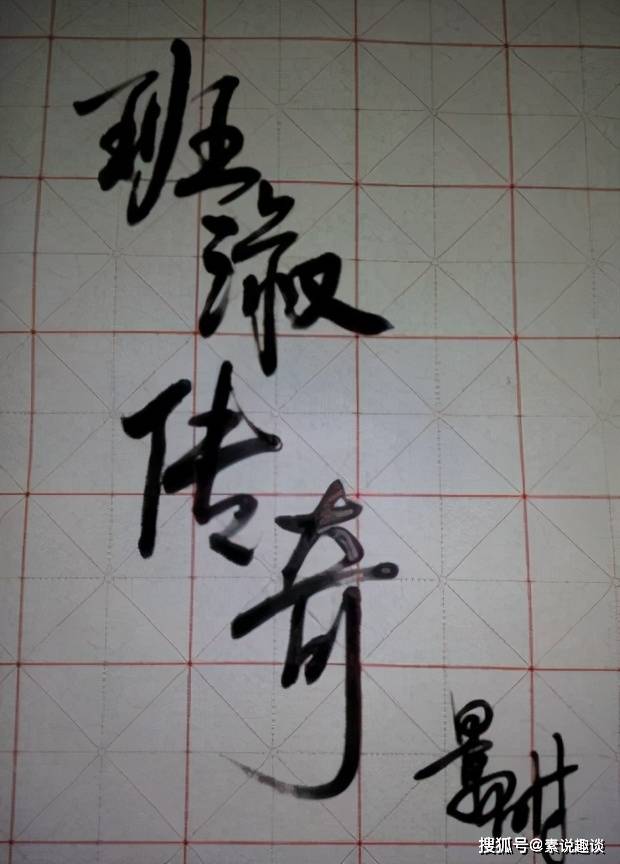 班淑
传奇
景甜
搜狐号@素说趣谈